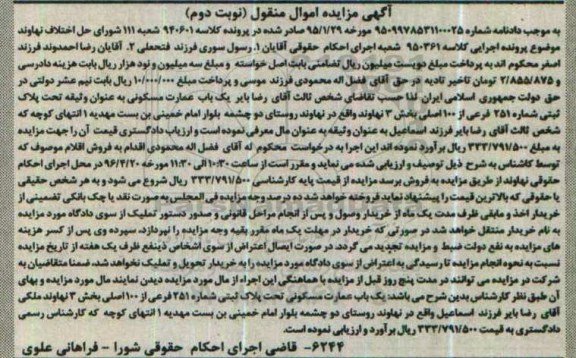 آگهی مزایده اموال منقول (نوبت دوم)
به موجب دادنامه شماره ۹۵۰۹۹۷۸۵۳۱۱۰۰۰۲۵ مورخه ۹۵/۱/۲۹ صادر شده در پرونده کلاسه ۹۴۰۶۰۱ شعبه ۱۱۱ شورای حل اختلاف نهاوند
موضوع پرونده اجرایی کلاسه ۹۵۰۳۶۱ شعبه اجرای احکام حقوقی آقایان ۱. رسول سوری فرزند فتحعلی ۲. آقایان رضا احمدوند فرزند
اصغر محکوم اند به پرداخت مبلغ دویست میلیون ریال تضامنی بابت اصل خواسته و مبلغ سه میلیون و نود هزار ریال بابت هزینه دادرسی
و ۲/۸۵۵/۸۷۵ تومان تاخیر تادیه در حق آقای فضل اله محمودی فرزند موسی و پرداخت مبلغ ۱۰/۰۰۰/۰۰۰ ریال بابت نیم عشر دولتی در
حق دولت جمهوری اسلامی ایران لذا حسب تقاضای شخص ثالث آقای رضا بابر یک باب عمارت مسکونی به عنوان وثیقه تحت پلاک
ثبتی شماره ۲۵۱ فرعی از ۱۰۰ اصلی بخش ۳ نهاوند واقع در نهاوند روستای دو چشمه بلوار امام خمینی بن بست مهدیه ۱ انتهای کوچه که
شخص ثالث آقای رضا بابر فرزند اسماعیل به عنوان وثیقه به عنوان مال معرفی نموده است و ارزیاب دادگستری قیمت آن را جهت مزایده
به مبلغ ۳۳۳/۷۹۱/۵۰۰ ریال برآورد نموده اند این اجرا به درخواست محکوم له آقای فضل اله محمودی اقدام به فروش اقلام موصوف که
توسط کاشناس به شرح ذیل توصیف و ارزیابی شده می نماید و مقرر است از ساعت ۱۰:۳۰ الی ۱۱:۳۰ مورخه ۹۶/۴/۲۰ در محل اجرای احکام
حقوقی نهاوند از طریق مزایده به فروش برسد مزایده از قیمت پایه کارشناسی ۳۳۳/۷۹۱/۵۰۰ ریال شروع می شود و به هر شخص حقیقی
یا حقوقی که بالاترین قیمت را پیشنهاد نماید فروخته خواهد شد ده درصد وجه مزایده فی المجلس به صورت نقد یا چک بانکی تضمینی از
خریدار اخذ و مابقی ظرف مدت یک ماه از خریدار وصول و پس از انجام مراحل قانونی و صدور دستور تملیک از سوی دادگاه مورد مزایده
به نام خریدار منتقل خواهد شد در صورتی که خریدار در مهلت یک ماه مقرر بقیه وجه مزایده را نپردازد، سپرده وی پس از کسر هزینه
های مزایده به نفع دولت ضبط و مزایده تجدید می گردد. در صورت ایصال اعتراض از سوی اشخاص ذینفع ظرف یک هفته از تاریخ مزایده
نسبت به نحوه انجام مزایده تا رسیدگی به اعتراض از سوی دادگاه مورد مزایده را به خریدار تحویل و تملیک نخواهد شد، ضمنا متقاضیان به
شرکت در مزایده می توانند در مدت پنج روز قبل از مزایده با هماهنگی این اجراء از مال مورد مزایده دیدن نمایند مال مورد مزایده و بهای
آن طبق نظر کارشناس بدین شرح می باشد: یک باب عمارت مسکونی تحت پلاک ثبتی شماره ۲۵۱ فرعی از ۱۰۰ اصلی بخش ۳ نهاوند ملکی
آقای رضا بابر فرزند اسماعیل واقع در نهاوند روستای دو چشمه بلوار امام خمینی بن بست مهدیه ۱ انتهای کوچه که کارشناس رسمی
دادگستری به قیمت ۳۳۳/۷۹۱/۵۰۰ ریال برآورد و ارزیابی نموده است.
۶۲۴۴- قاضی اجرای احکام حقوقی شورا - فراهانی علوی